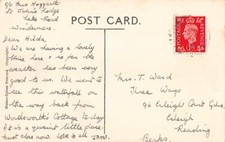 c/o Mrs Haggarth
St John's Lodge
Lake Road
Windermere.
POST CARD.
Dear Hilda,
We are having a lovely
time here & so far the
weather has been very
good to us. We went to
see this waterfall on
the way back from
Wordsworth's Cottage to-day
it is a quaint little place
Mrs. T Ward
Three Ways
Earleigh
Reading
Berks.